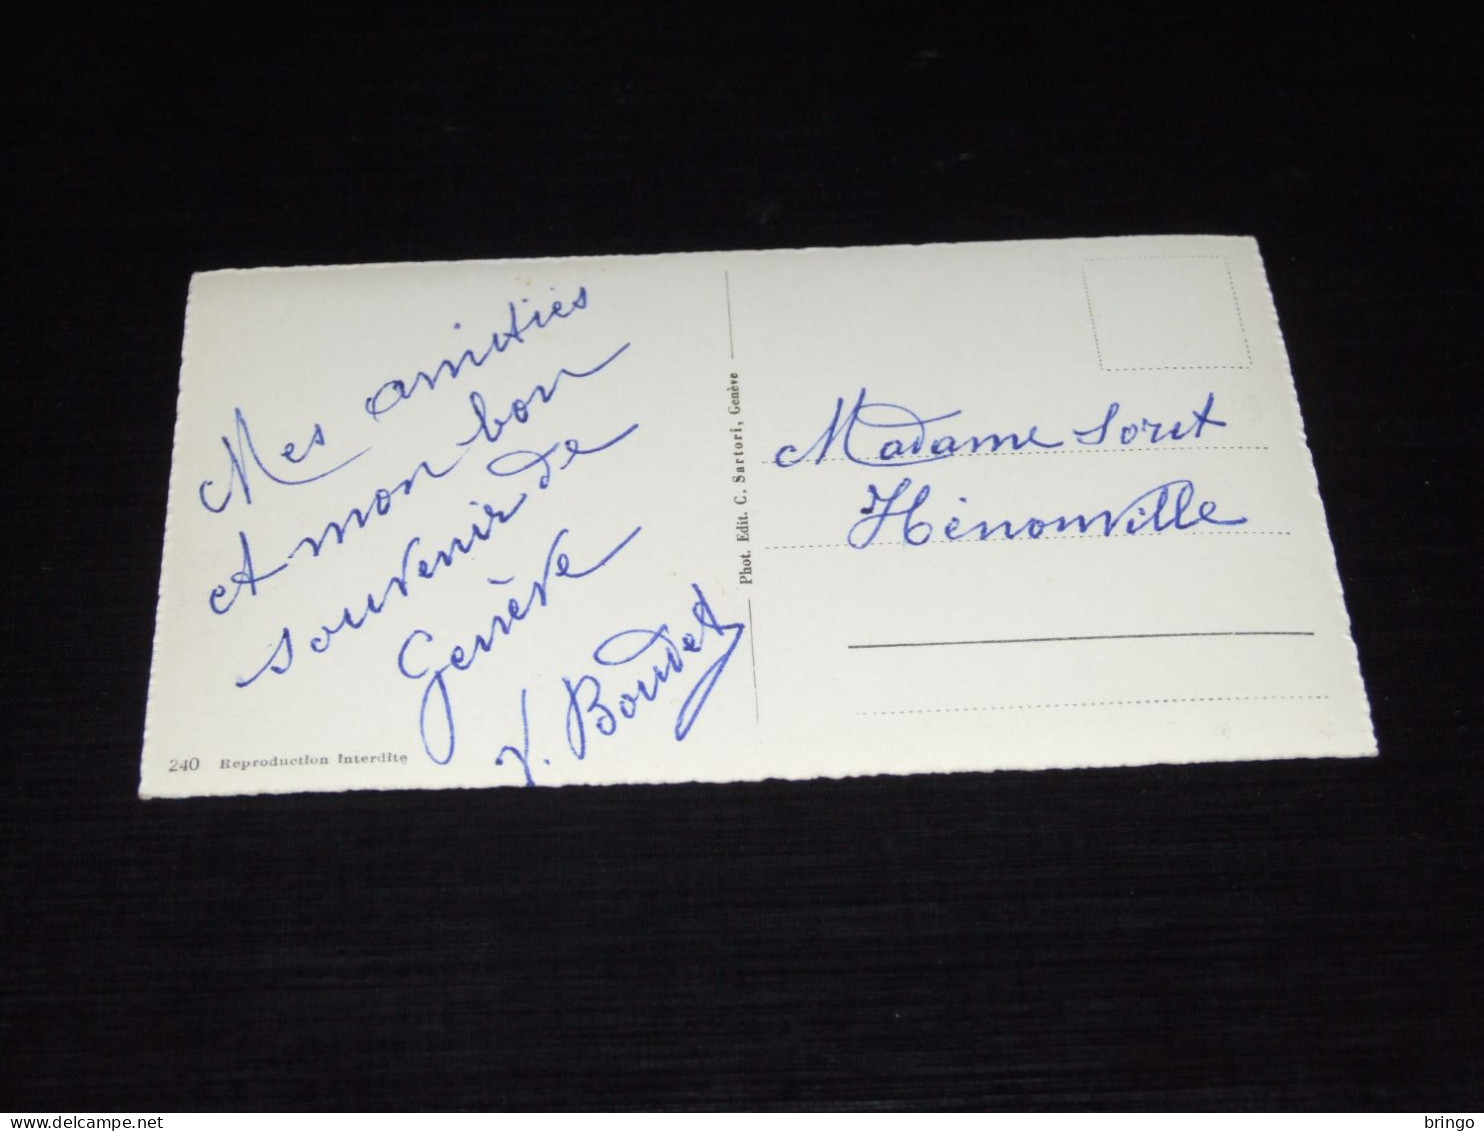 Mes amitiés
et mon bon
souvenir de
Genève
V. Boudet
240 Reproduction interdite
Phot. Edit. C. Sartori, Genève
Madame Soret
Hénonville
delcampe.net
bringo